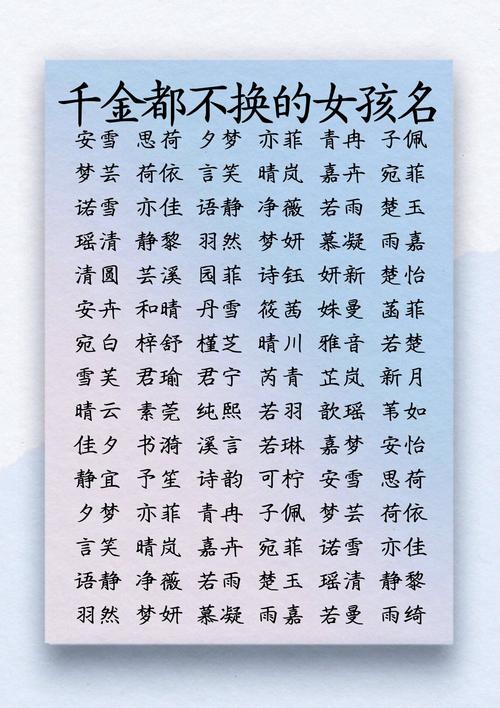 千金都不换的女孩名
安雪 思荷 夕梦 亦菲 青冉 子佩
梦芸 荷依 言笑 晴岚 嘉卉 宛菲
诺雪 亦佳 语静 净薇 若雨 楚玉
瑶清 静黎 羽然 梦妍 慕凝 雨嘉
清圆 芸溪 园菲 诗钰 妍新 楚怡
安卉 和晴 丹雪 筱茜 姝曼 菡菲
宛白 梓舒 槿芝 晴川 雅音 若楚
雪芙 君瑜 君宁 芮青 芷岚 新月
晴云 素莞 纯熙 若羽 歆瑶 苇如
佳夕 书漪 溪言 若琳 嘉梦 安怡
静宜 予笙 诗韵 可柠 安雪 思荷
夕梦 亦菲 青冉 子佩 梦芸 荷依
言笑 晴岚 嘉卉 宛菲 诺雪 亦佳
语静 净薇 若雨 楚玉 瑶清 静黎
羽然 梦妍 慕凝 雨嘉 若曼 雨绮